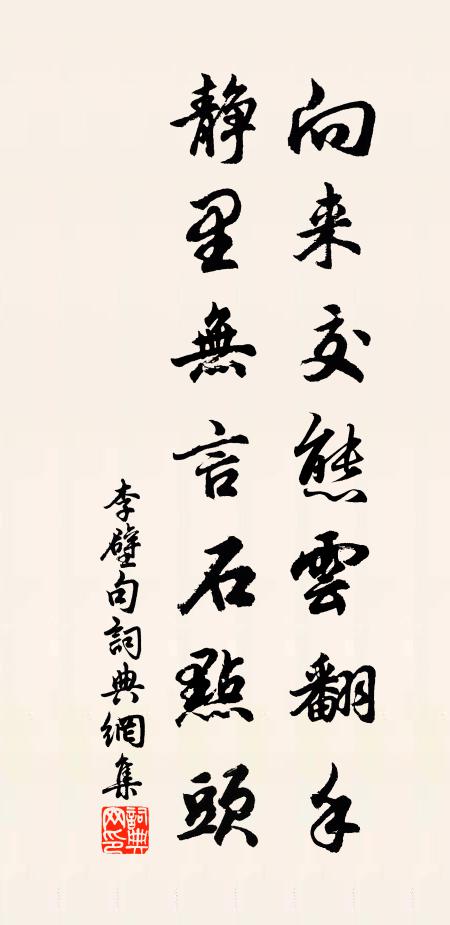 向来交態雲翻手
静里無言石點頭
李壁句詞典網集
詞典
网印